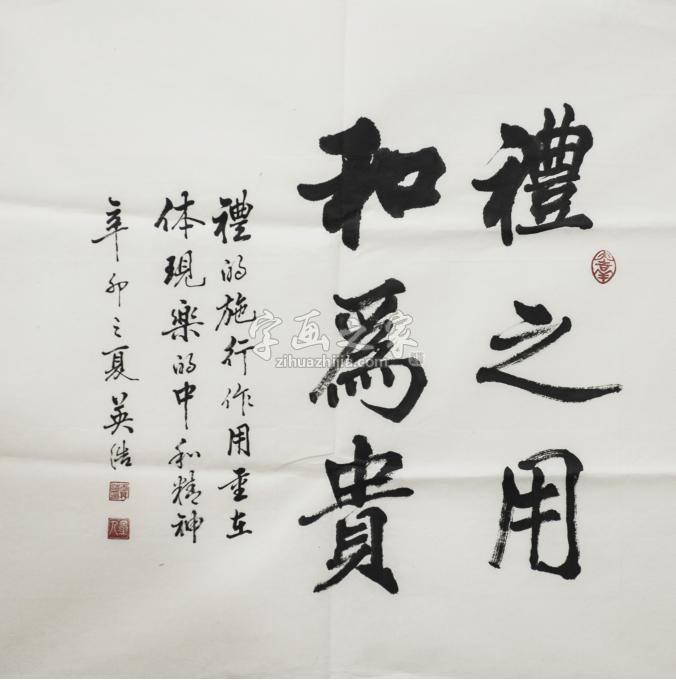 禮之用
和為貴
禮的施行作用重在
体現樂的中和精神
辛卯之夏英浩
字画之家
zihuazhijia.com